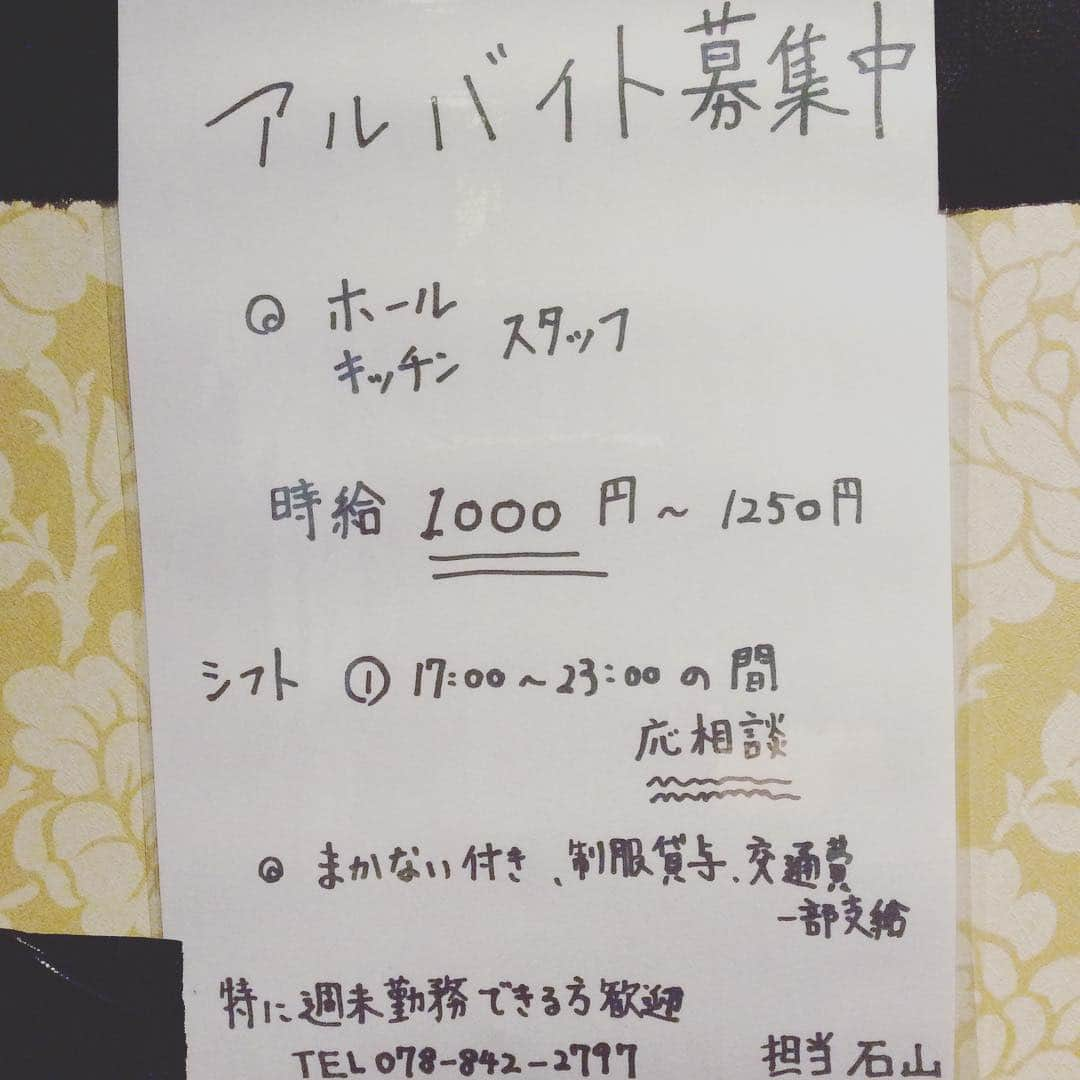 アルバイト募集中
◎ ホール
キッチン スタッフ
時給 1000円～1250円
シフト ① 17:00～23:00の間
応相談
◎ まかない付き、制服貸与、交通費
一部支給
特に週末勤務できる方歓迎
TEL 078-842-2797 担当 石山